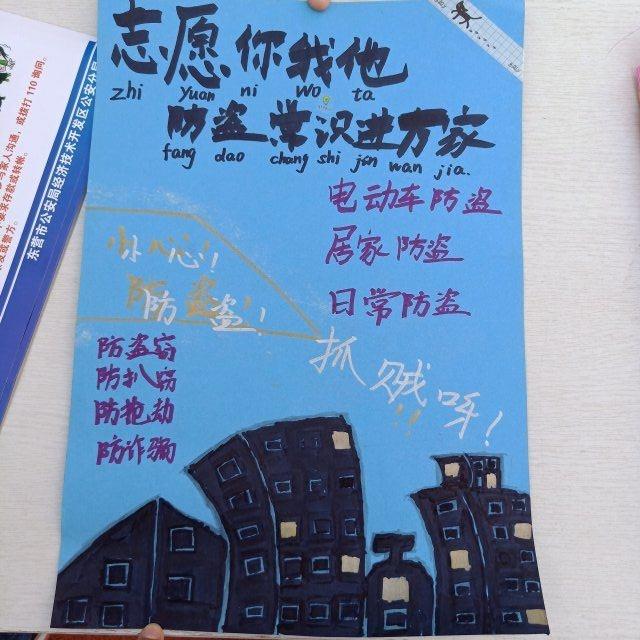 志愿你我他
zhi yuan ni wo ta
防盗常识进万家
fang dao chang shi jin wan jia.
电动车防盗
居家防盗
日常防盗
小心!
防盗!
防盗!
抓贼呀!
!!
防盗窃
防扒窃
防抢劫
防诈骗
东营市公安局经济技术开发区公安分局
或拨打 110 询问。